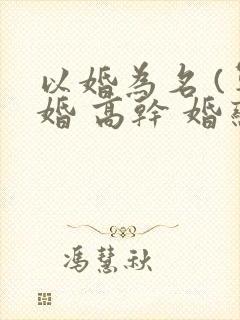 以婚為名(
婚 高幹 婚
馮慧秋